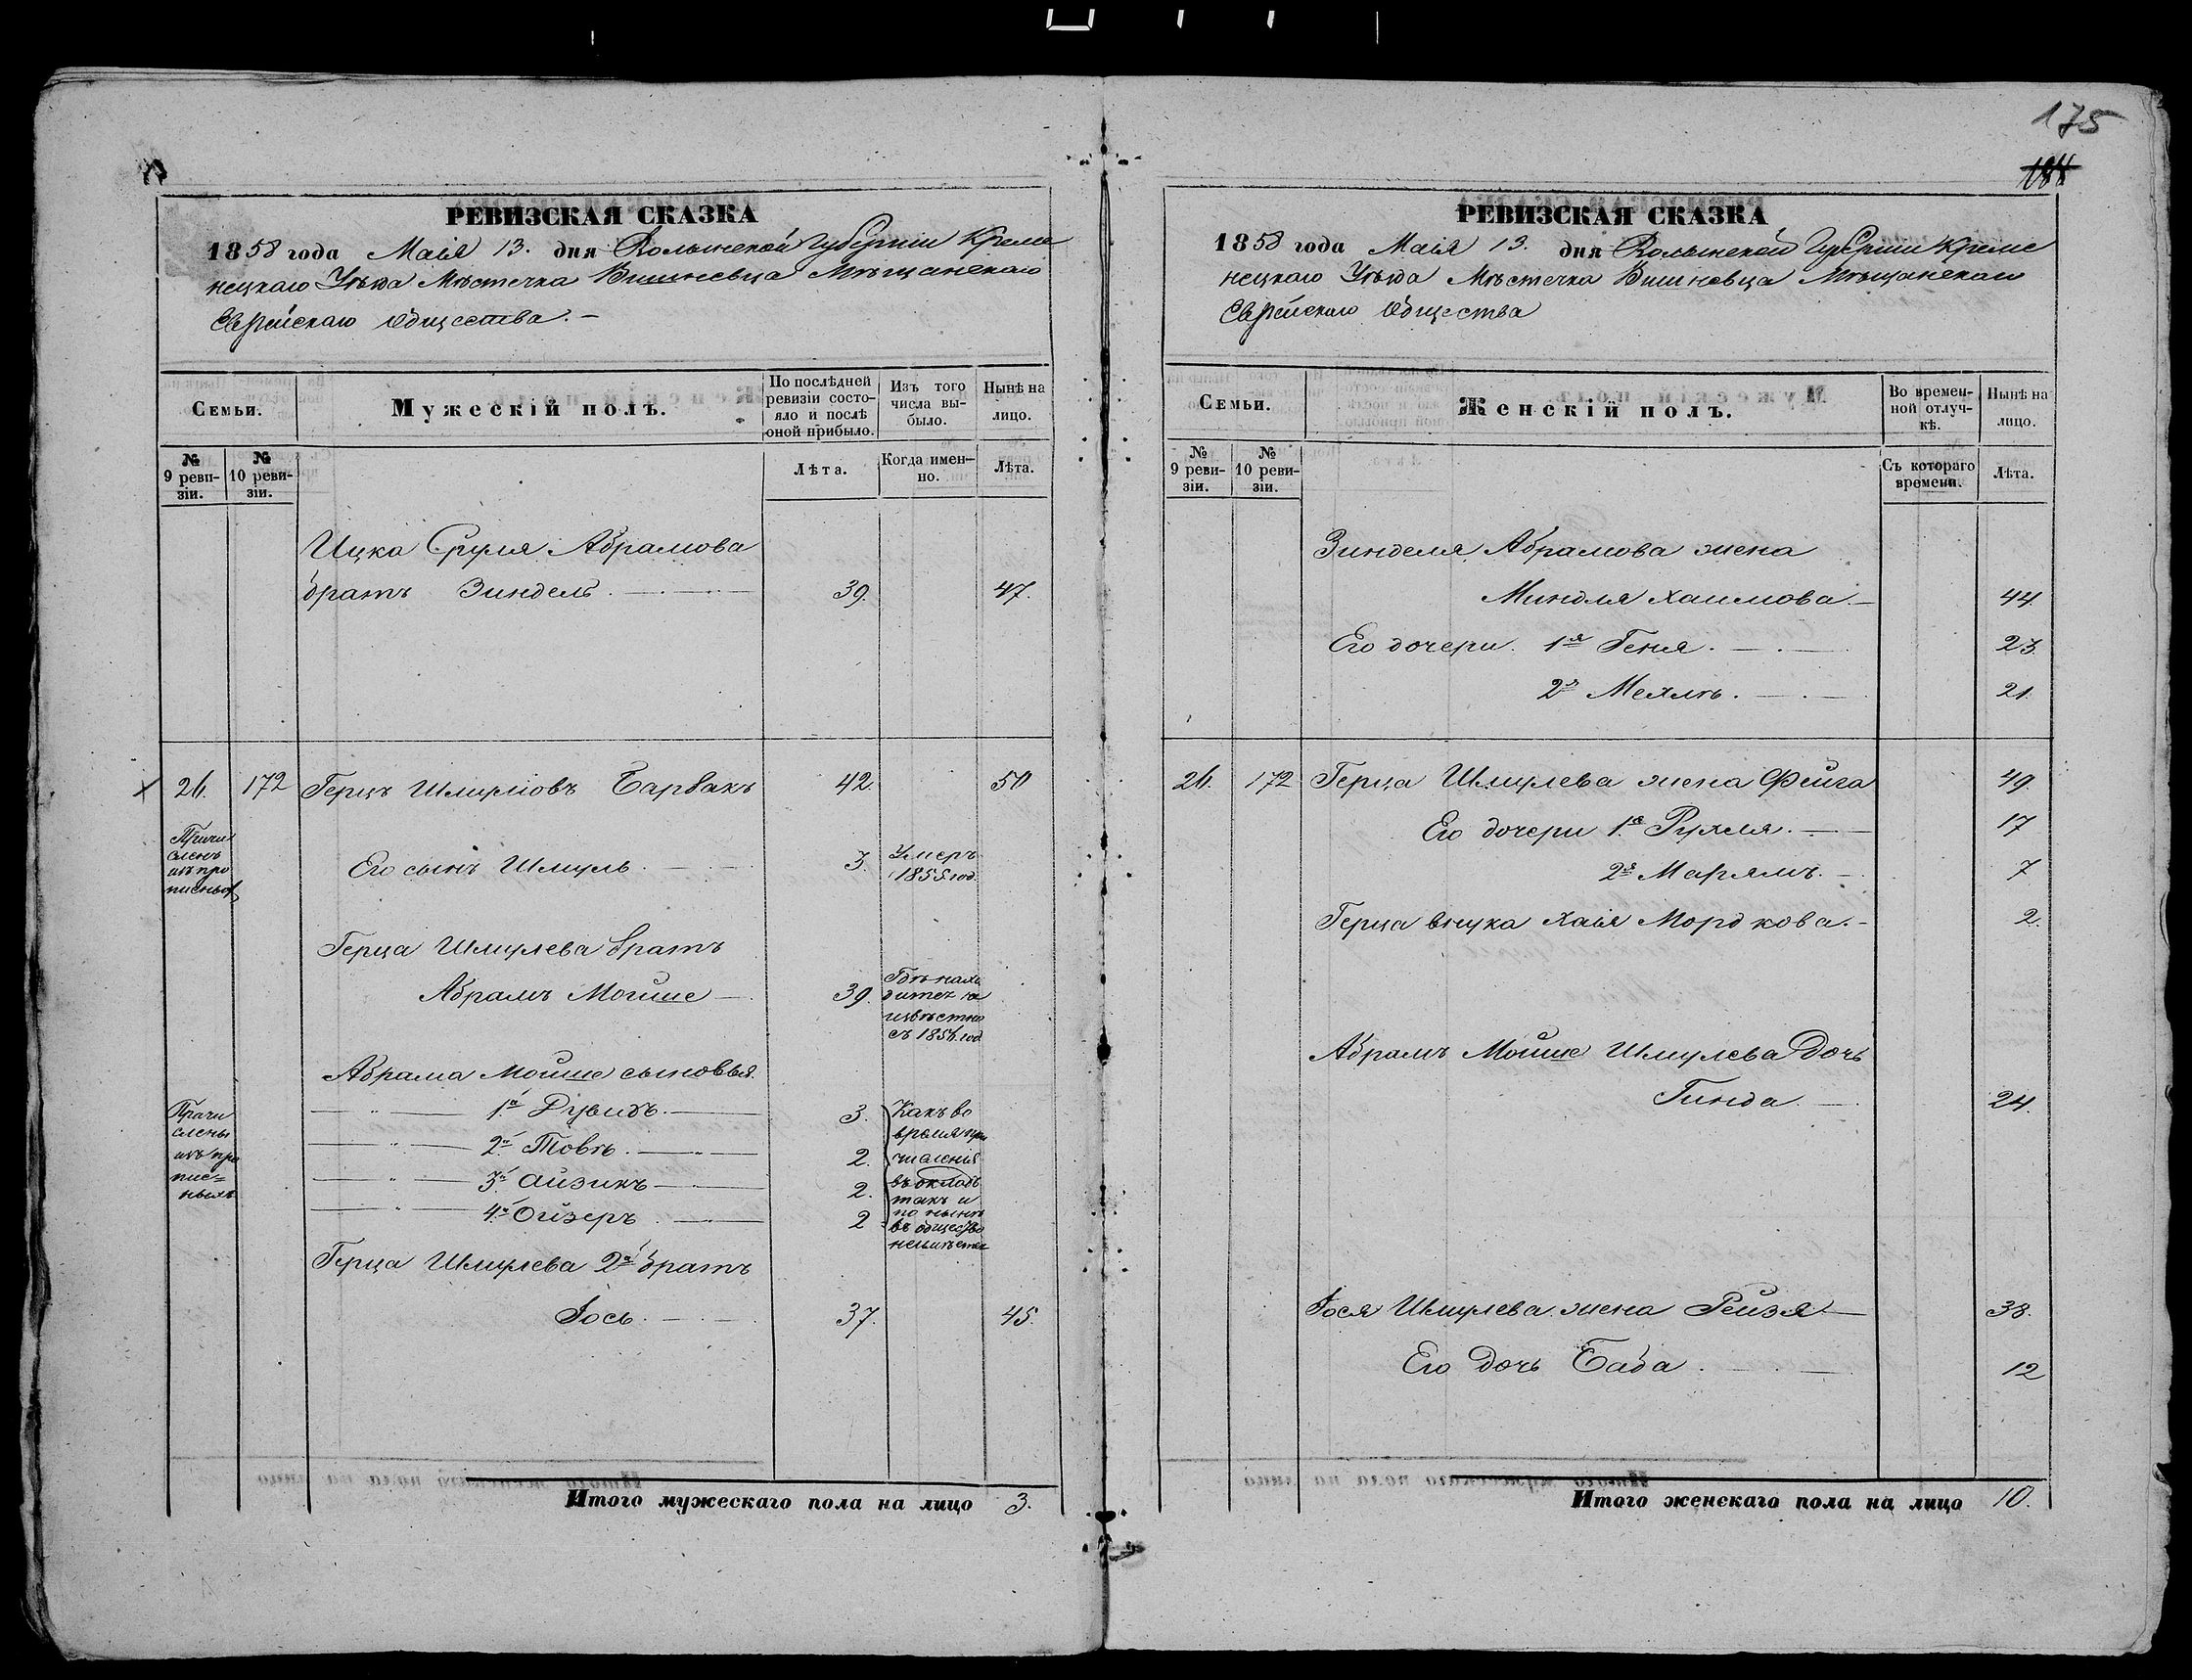 175
188
РЕВИЗСКАЯ СКАЗКА
1858 года Маія 13. дня Волынской Губерніи Креме
нецкаго Уѣзда Мѣстечка Вишневца Мѣщанскаго
Еврейскаго Общества. –
Семьи.
Мужескій полъ.
По послѣдней
ревизіи состо-
яло и послѣ
оной прибыло.
Изъ того
числа вы-
было.
Нынѣ на
лицо.
№
9 реви-
зіи.
№
10 реви-
зіи.
Лѣта.
Когда имен-
но.
Лѣта.
Ицка Сруля Абрамова
братъ Зиндель 39. 47.
26. 172 Герцъ Шмуліовъ Барбакъ 42. 50
Причи
сленъ
изъ про
писныхъ
Его сынъ Шмуль 3. Умеръ
1855 год.
Герца Шмулева братъ
Абрамъ Мошше 39. Гдѣ нахо
дится не
извѣстно
съ 1854 год
Абрама Мошше сыновья
Причи
слены
изъ про
пис=
ныхъ
1й Дувидъ 3.
2й Товѣ 2.
3й Айзикъ 2.
4й Ойзеръ 2
Какъ во
время при
численія
въ окладъ
такъ и
по нынѣ
въ обществѣ
неимѣется
Герца Шмулева 2й братъ
Іось 37. 45.
Итого мужескаго пола на лицо 3.
РЕВИЗСКАЯ СКАЗКА
1858 года Маія 13. дня Волынской Губерніи Креме
нецкаго Уѣзда Мѣстечка Вишневца Мѣщанскаго
Еврейскаго Общества
Семьи.
Женскій полъ.
Во времен-
ной отлуч-
кѣ.
Нынѣ на
лицо.
№
9 реви-
зіи.
№
10 реви-
зіи.
Съ котораго
времени.
Лѣта.
Зинделя Абрамова жена
Миндля Хаимова 44.
Его дочери 1я Геня 23.
2я Мехлѣ 21.
26. 172 Герца Шмулева жена Фейга 49.
Его дочери 1я Рухля 17
2я Марямъ 7
Герца внука Хаія Мордкова 2.
Абрамъ Мошше Шмулева Дочь
Гинда 24.
Іося Шмулева жена Рейзя 38.
Его Дочь Баба 12
Итого женскаго пола на лицо 10.